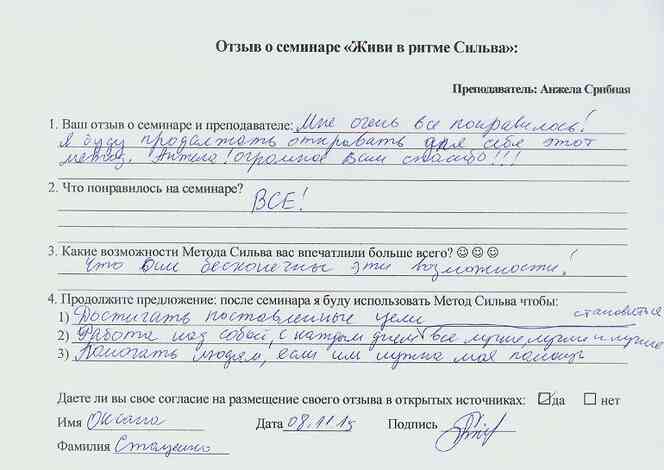 Отзыв о семинаре «Живи в ритме Сильва»:
Преподаватель: Анжела Срибная
1. Ваш отзыв о семинаре и преподавателе: Мне очень все понравилось!
Я буду продолжать открывать для себя этот
метод. Анжела! огромное Вам спасибо!!!
2. Что понравилось на семинаре?
ВСЕ!
3. Какие возможности Метода Сильва вас впечатлили больше всего? ☺☺☺
Что они бесконечны эти возможности!
4. Продолжите предложение: после семинара я буду использовать Метод Сильва чтобы:
1) Достигать поставленные цели
становиться
2) Работа над собой, с каждым днем все лучше, лучше и лучше
3) Помогать людям, если им нужна моя помощь
Даете ли вы свое согласие на размещение своего отзыва в открытых источниках: ☑да ☐ нет
Имя Оксана Дата 08.11.15 Подпись
Фамилия